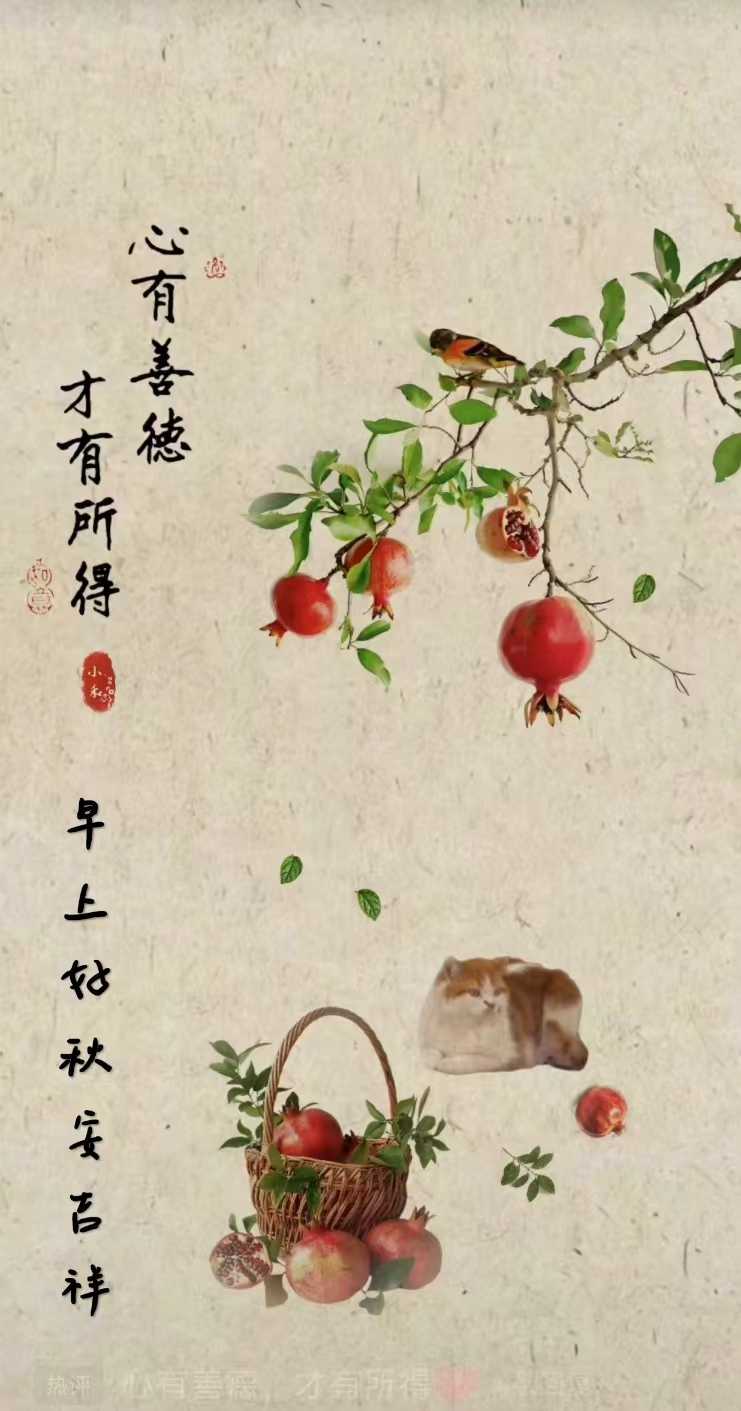 心有善德
才有所得
如意
早上好秋安吉祥
热评 心有善德,才有所得